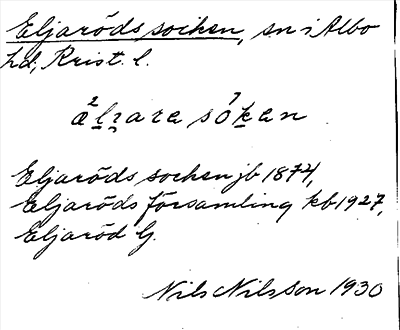 Eljaröds socken, sn i Albo
hd, Krist. l.
æ²lʒare sö⁷ken
Eljaröds socken jb 1874,
Eljaröds församling kb 1927,
Eljaröd G.
Nils Nilsson 1930